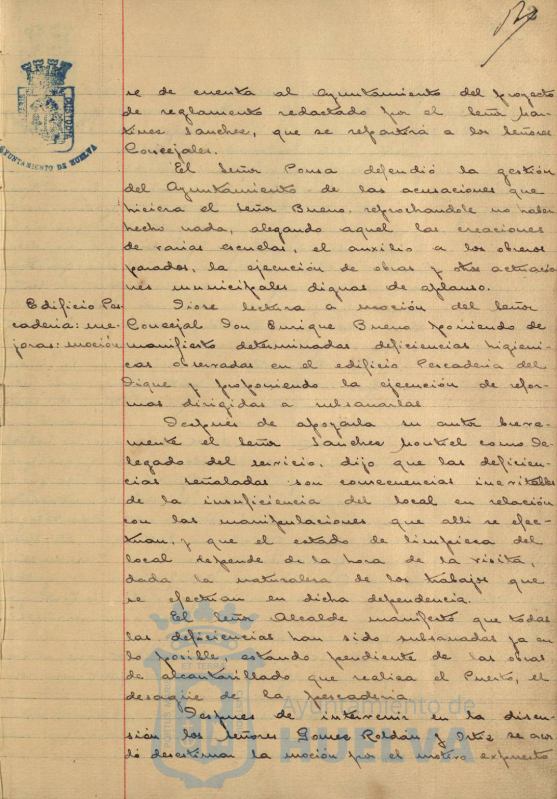 se de cuenta al Ayuntamiento del proyecto
de reglamento redactado por el Señor Mar-
tinez Sanchez, que se repartirá a los Señores
Concejales.
El Señor Ponsa defendió la gestión
del Ayuntamiento de las acusaciones que
hiciera el Señor Bueno, reprochandole no haber
hecho nada, alegando aquel las creaciones
de varias escuelas, el auxilio a los obreros
parados, la ejecución de obras y otras actuacio
nes municipales dignas de aplauso.
Edificio Pes-
caderia: me-
joras: moción
Diose lectura a moción del Señor
Concejal Don Enrique Bueno poniendo de
manifiesto determinadas deficiencias higieni-
cas observadas en el edificio Pescaderia del
Dique y proponiendo la ejecución de refor-
mas dirigidas a subsanarlas
Despues de apoyarla su autor breve-
mente el Señor Sanchez Montiel como De-
legado del servicio, dijo que las deficien-
cias señaladas son consecuencias inevitables
de la insuficiencia del local en relación
con las manipulaciones que alli se efec-
tuan, y que el estado de limpieza del
local depende de la hora de la visita,
dada la naturaleza de los trabajos que
se efectúan en dicha dependencia.
El Señor Alcalde manifestó que todas
las deficiencias han sido subsanadas ya en
lo posible, estando pendiente de las obras
de alcantarillado que realiza el Puerto, el
desagüe de la pescaderia
Despues de intervenir en la discu-
sión los Señores Gomez Roldán y Ortiz se acor
dó desestimar la moción por el motivo expuesto
AYUNTAMIENTO DE HUELVA
Ayuntamiento de
HUELVA